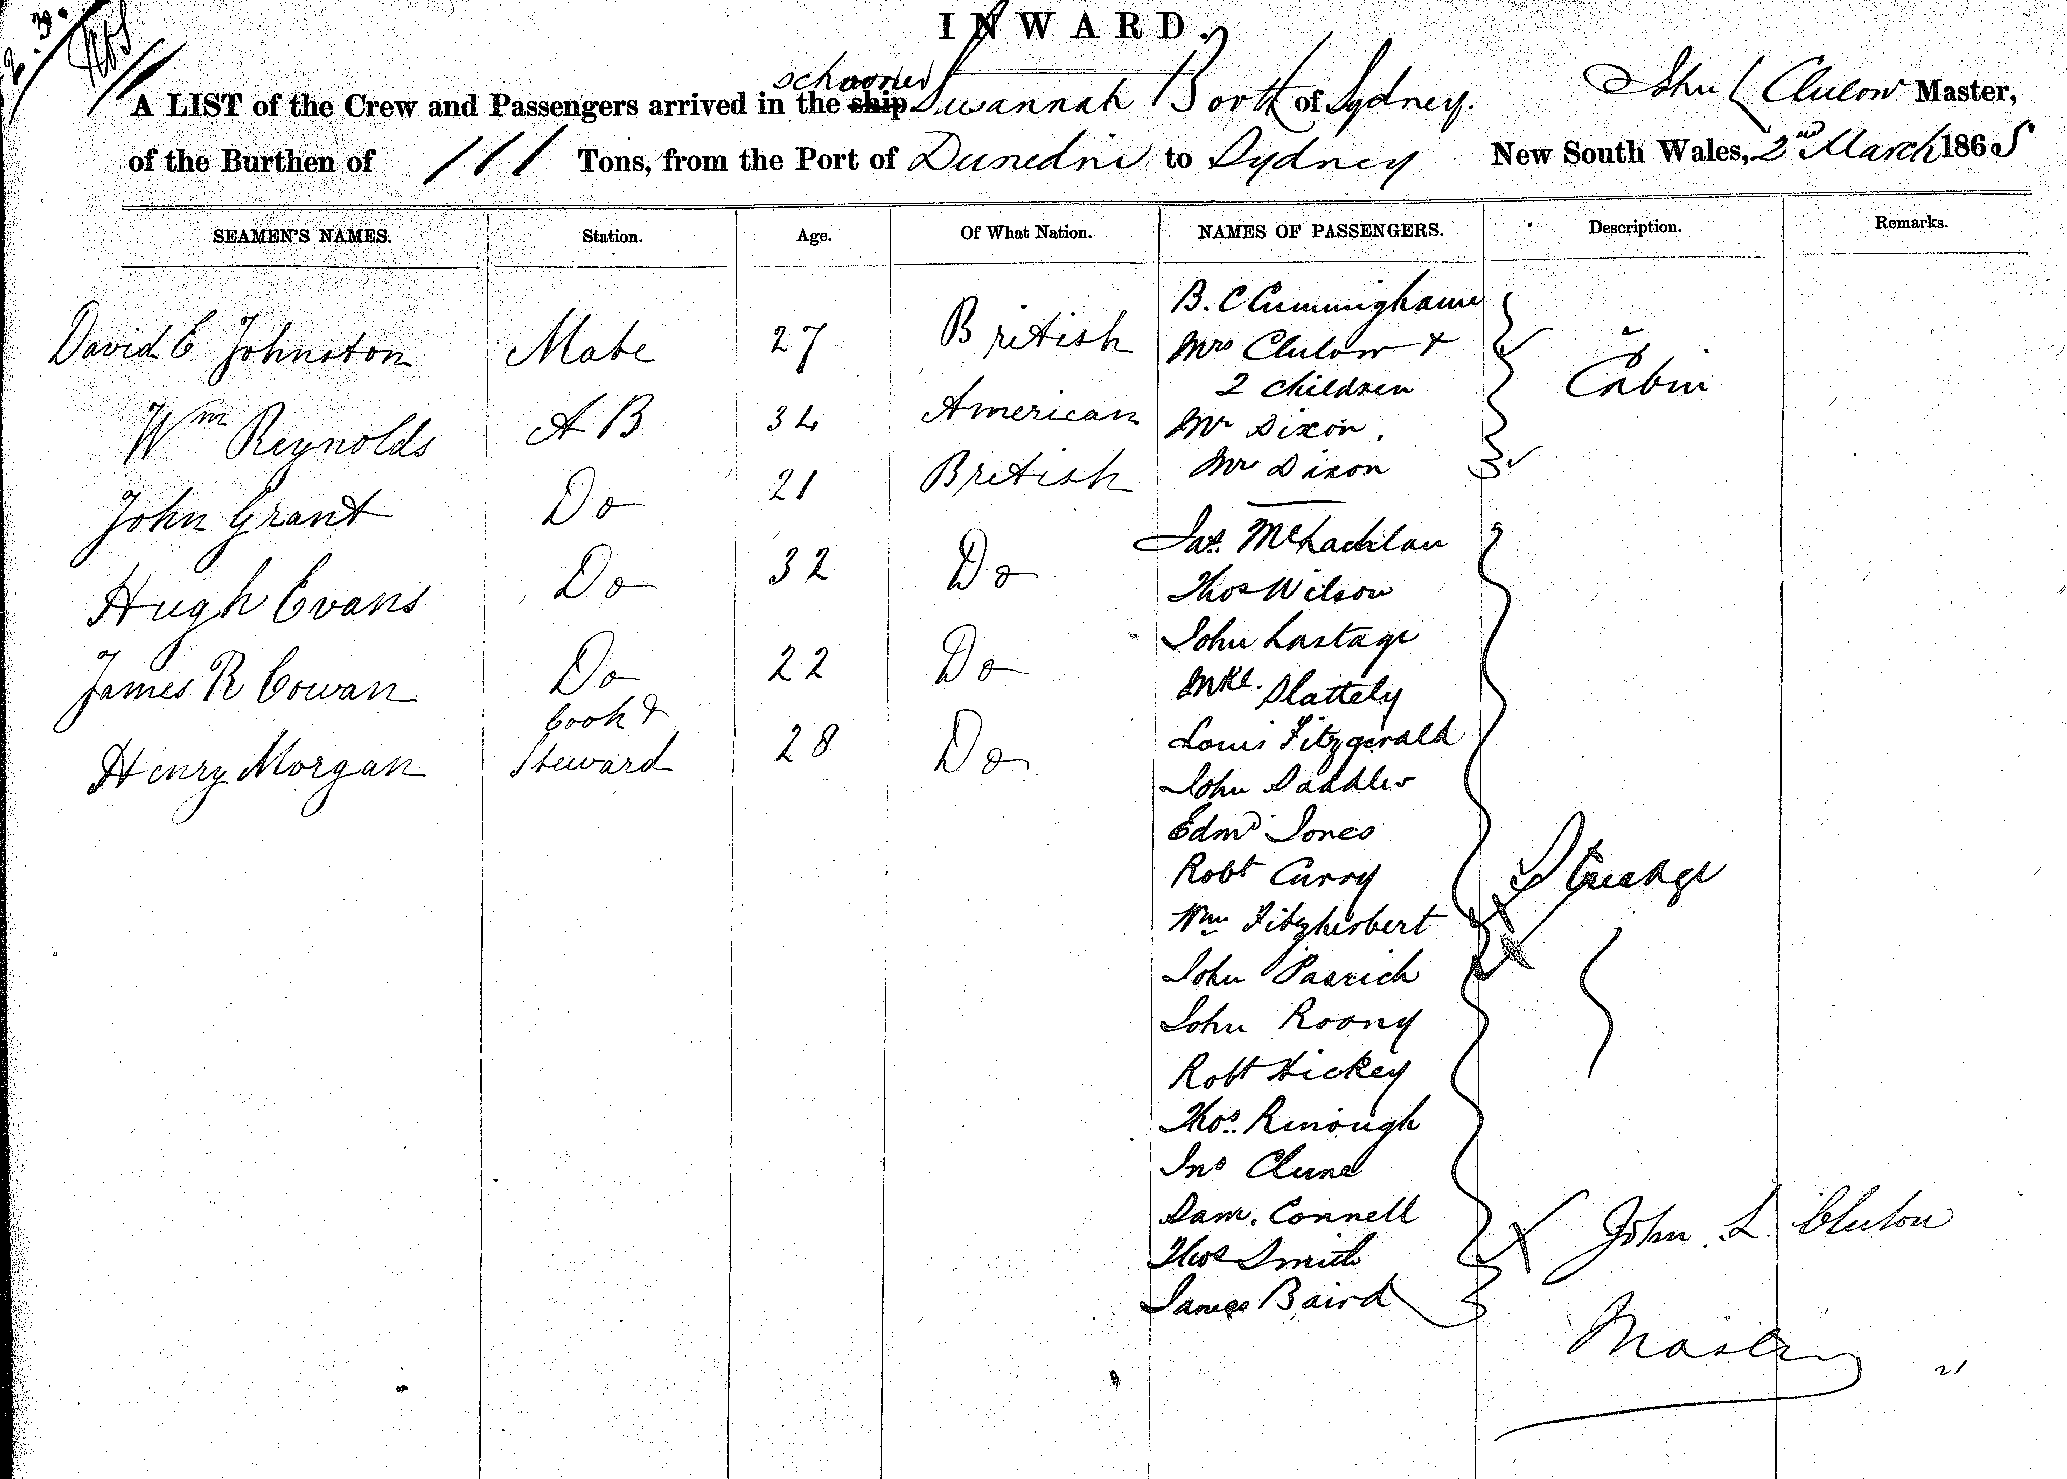 INWARD.
schooner
A LIST of the Crew and Passengers arrived in the ship Suwannah Booth of Sydney. John L Clulow Master,
of the Burthen of 111 Tons, from the Port of Dunedin to Sydney New South Wales, 2nd March 1865
SEAMEN'S NAMES. Station. Age. Of What Nation. NAMES OF PASSENGERS. Description. Remarks.
David C Johnston Mate 27 British
Wm Reynolds A B 34 American
John Grant Do 21 British
Hugh Evans Do 32 Do
James R Cowan Do 22 Do
Henry Morgan Cook & Steward 28 Do
B. C Cunninghame
Mrs Clulow +
2 children
Mr Dixon.
Mrs Dixon
Cabin
Jas. McLachlan
Thos Wilson
John Lastage
Mkl. Slattely
Louis Fitzgerald
John Saddler
Edmd Jones
Robt Curry
Wm Fitzherbert
John Pasrich
John Roony
Robt Hickey
Thos. Rinough
Jno Clune
Dam. Connell
Thos Smith
James Baird
Steerage
John L Clulow
Master
21